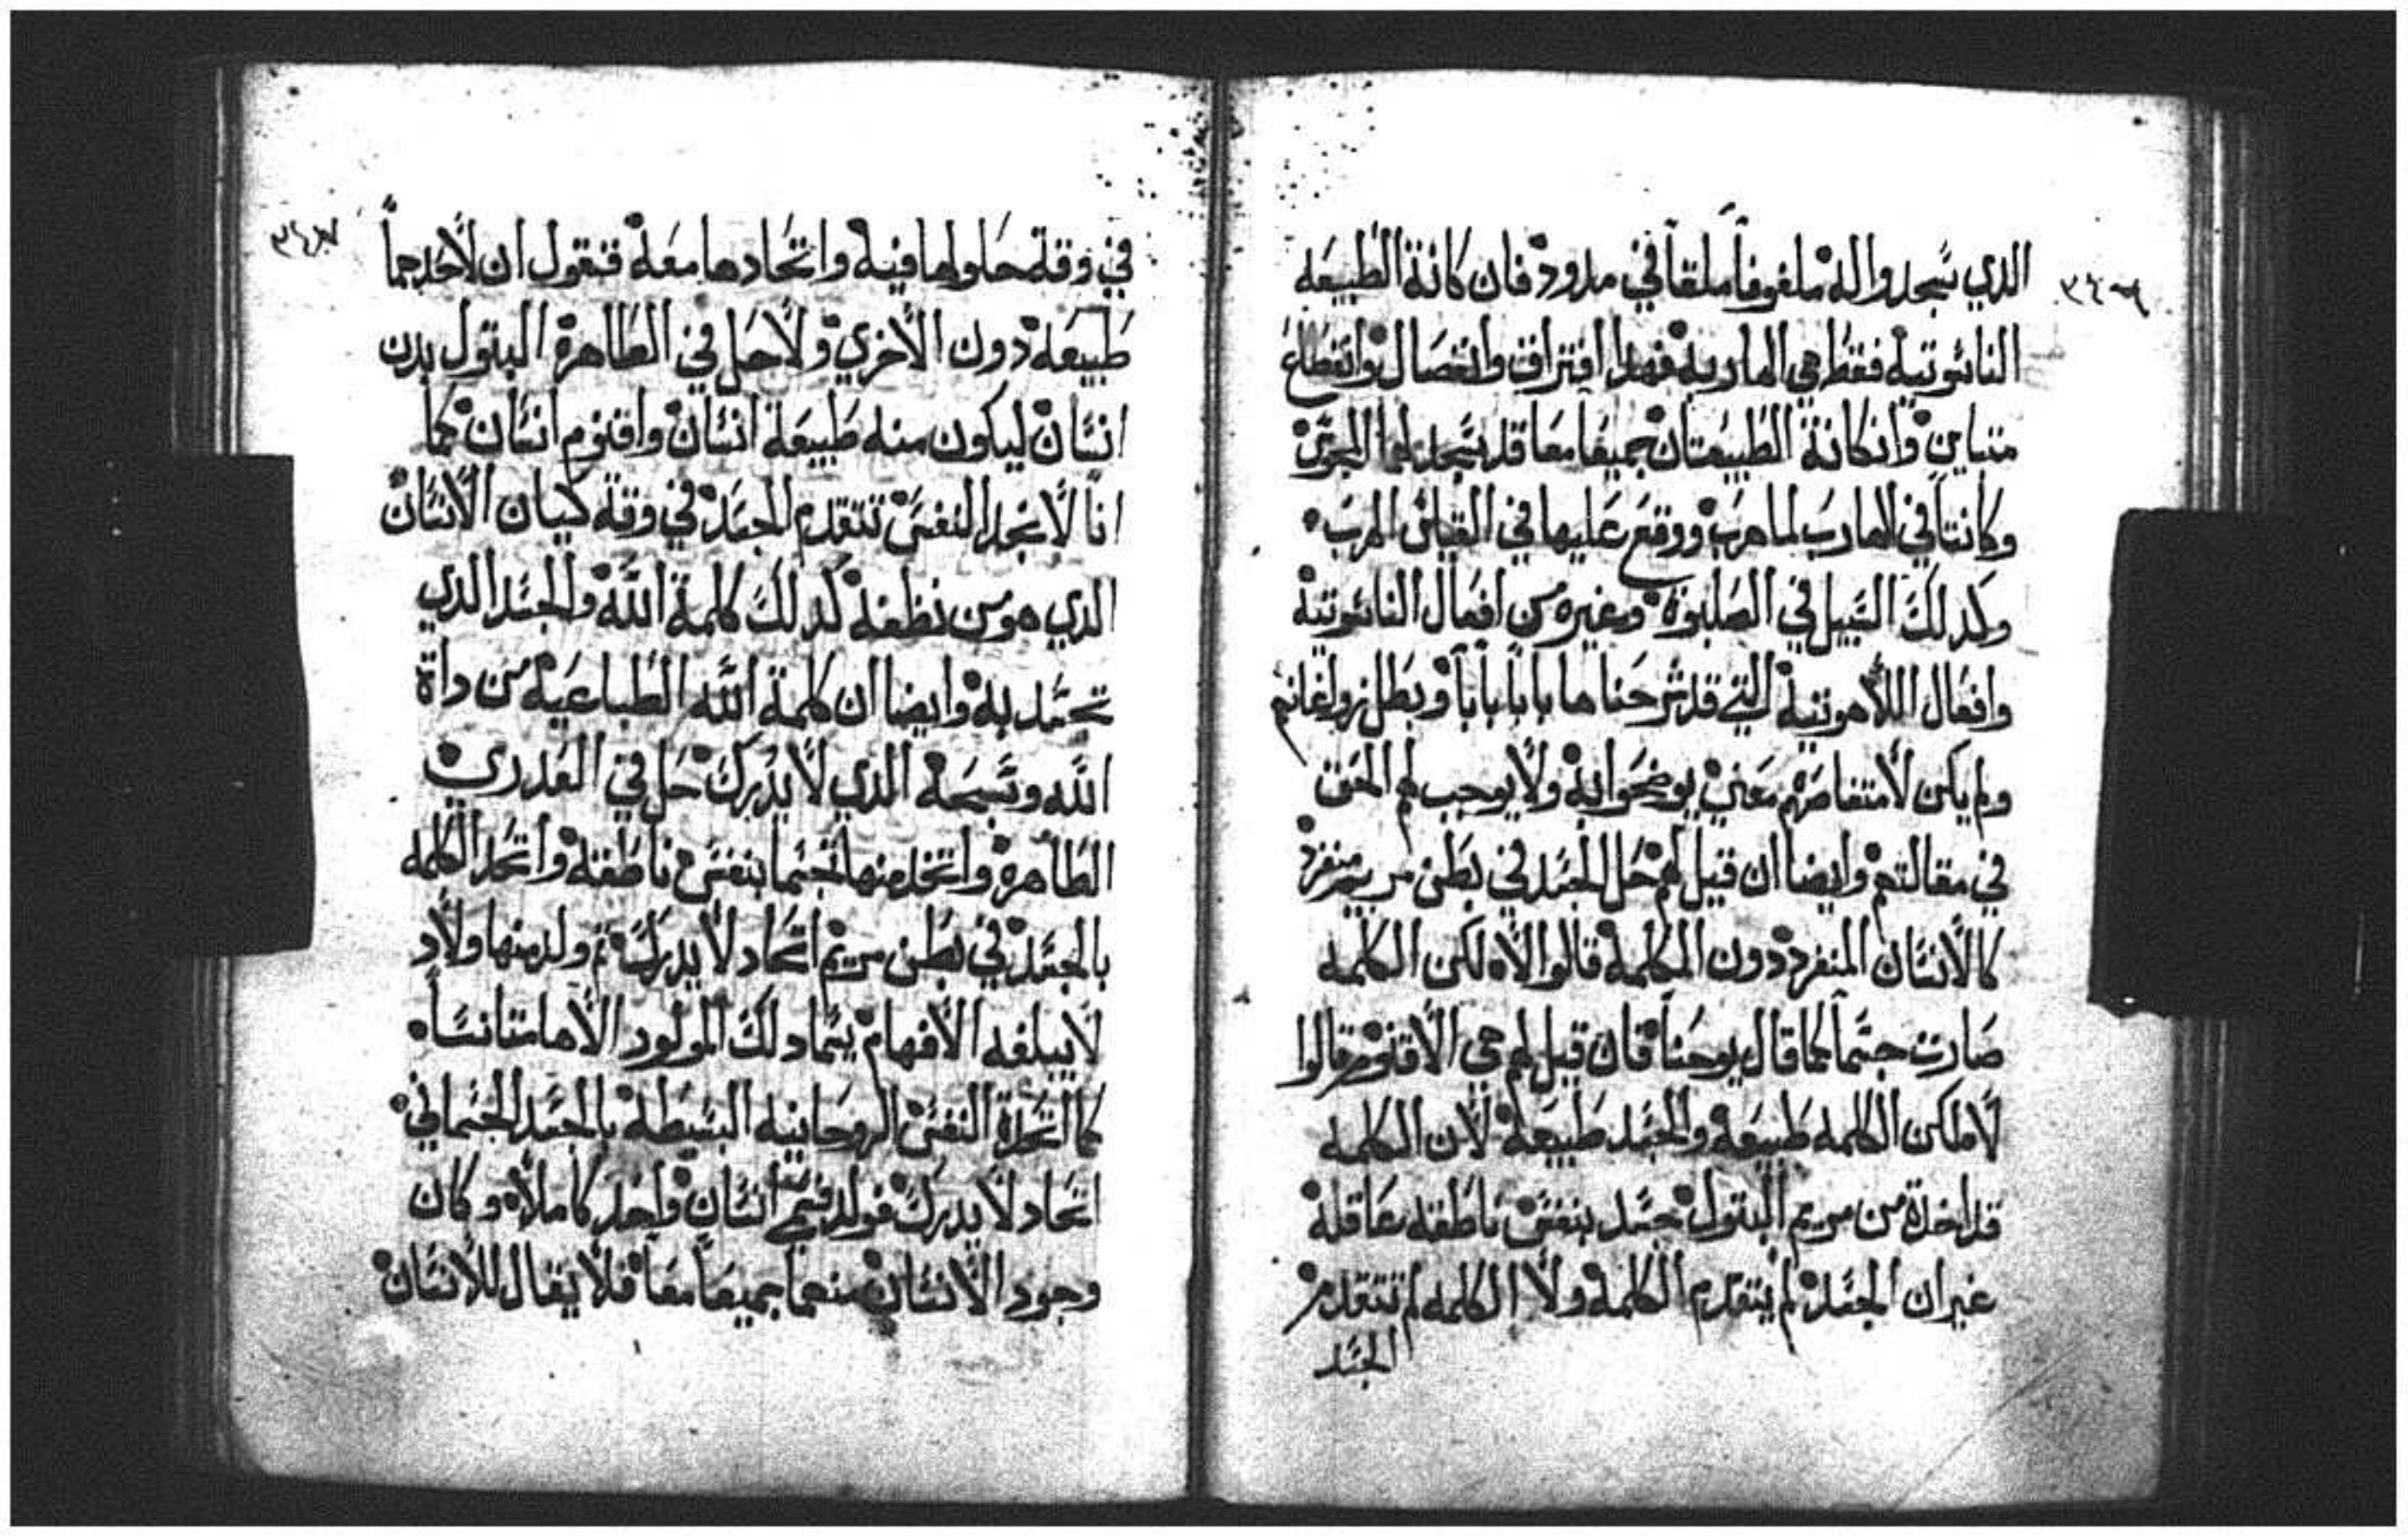 ٣٤٦
الذي سجدوا له ملفوفاً ملقاً في مدود فان كانة الطبيعه
الناسوتيه فقط هي الهاربه فهدا افتراق وانفصال وانقطاع
متباين وانكانة الطبيعتان جميعا معا قد سجد لهما المجوس
وكانتا في الهارب لما هرب ووقع عليها في القياس الهرب
وكدلك السبيل في الصلبوة وغيره من افعال الناسوتية
وافعال اللاهوتيه التي قد شرحناها باباً باباً وبطل زواغانهم
ولم يكن لامتفاصهم معني يوضحوا به ولا يوجب لهم الحق
في مقالتهم وايضا ان قيل لهم حل الجسد في بطن مريم منفرد
كالانسان المنفرد دون الكلمة قالوا لا لكن الكلمه
صارت جسماً كما قال يوحنا فان قيل لهم هي الاقنوم قالوا
لا ولكن الكلمه طبيعه والجسد طبيعة لان الكلمه
قد اخدة من مريم البتول جسد بنفس ناطقه عاقلة
غير ان الجسد لم يتقدم الكلمة ولا الكلمه لم تتقدم
الجسد
٣٤٧
في وقة حلولها فيه واتحادها معه فنقول ان لاحدهما
طبيعه دون الاخري ولا حل في الطاهرة البتول بدن
انسان ليكون منه طبيعة انسان واقنوم انسان كما
انا لا نجد النفس تتقدم الجسد في وقة كيان الانسان
الدي هو من نطفة كدلك كلمة الله والجسد الدي
تجسد به وايضا ان كلمة الله الطباعيه من داة
الله وتسبحة الدي لا يدرك حل في العدري
الطاهرة واتخد منها جسما بنفس ناطقة واتحد الكلمه
بالجسد في بطن مريم اتحاد لا يدرك تم ولد منها ولاد
لا يبلغه الافهام يسما دلك المولود الاها متانساً
كما اتحدة النفس الروحانيه البسيطة بالجسد الجسماني
اتحاد لا يدرك فولد فسمي انسان واحد كاملا وكان
وجود الانسان منهما جميعاً معاً فلا يقال للانسان